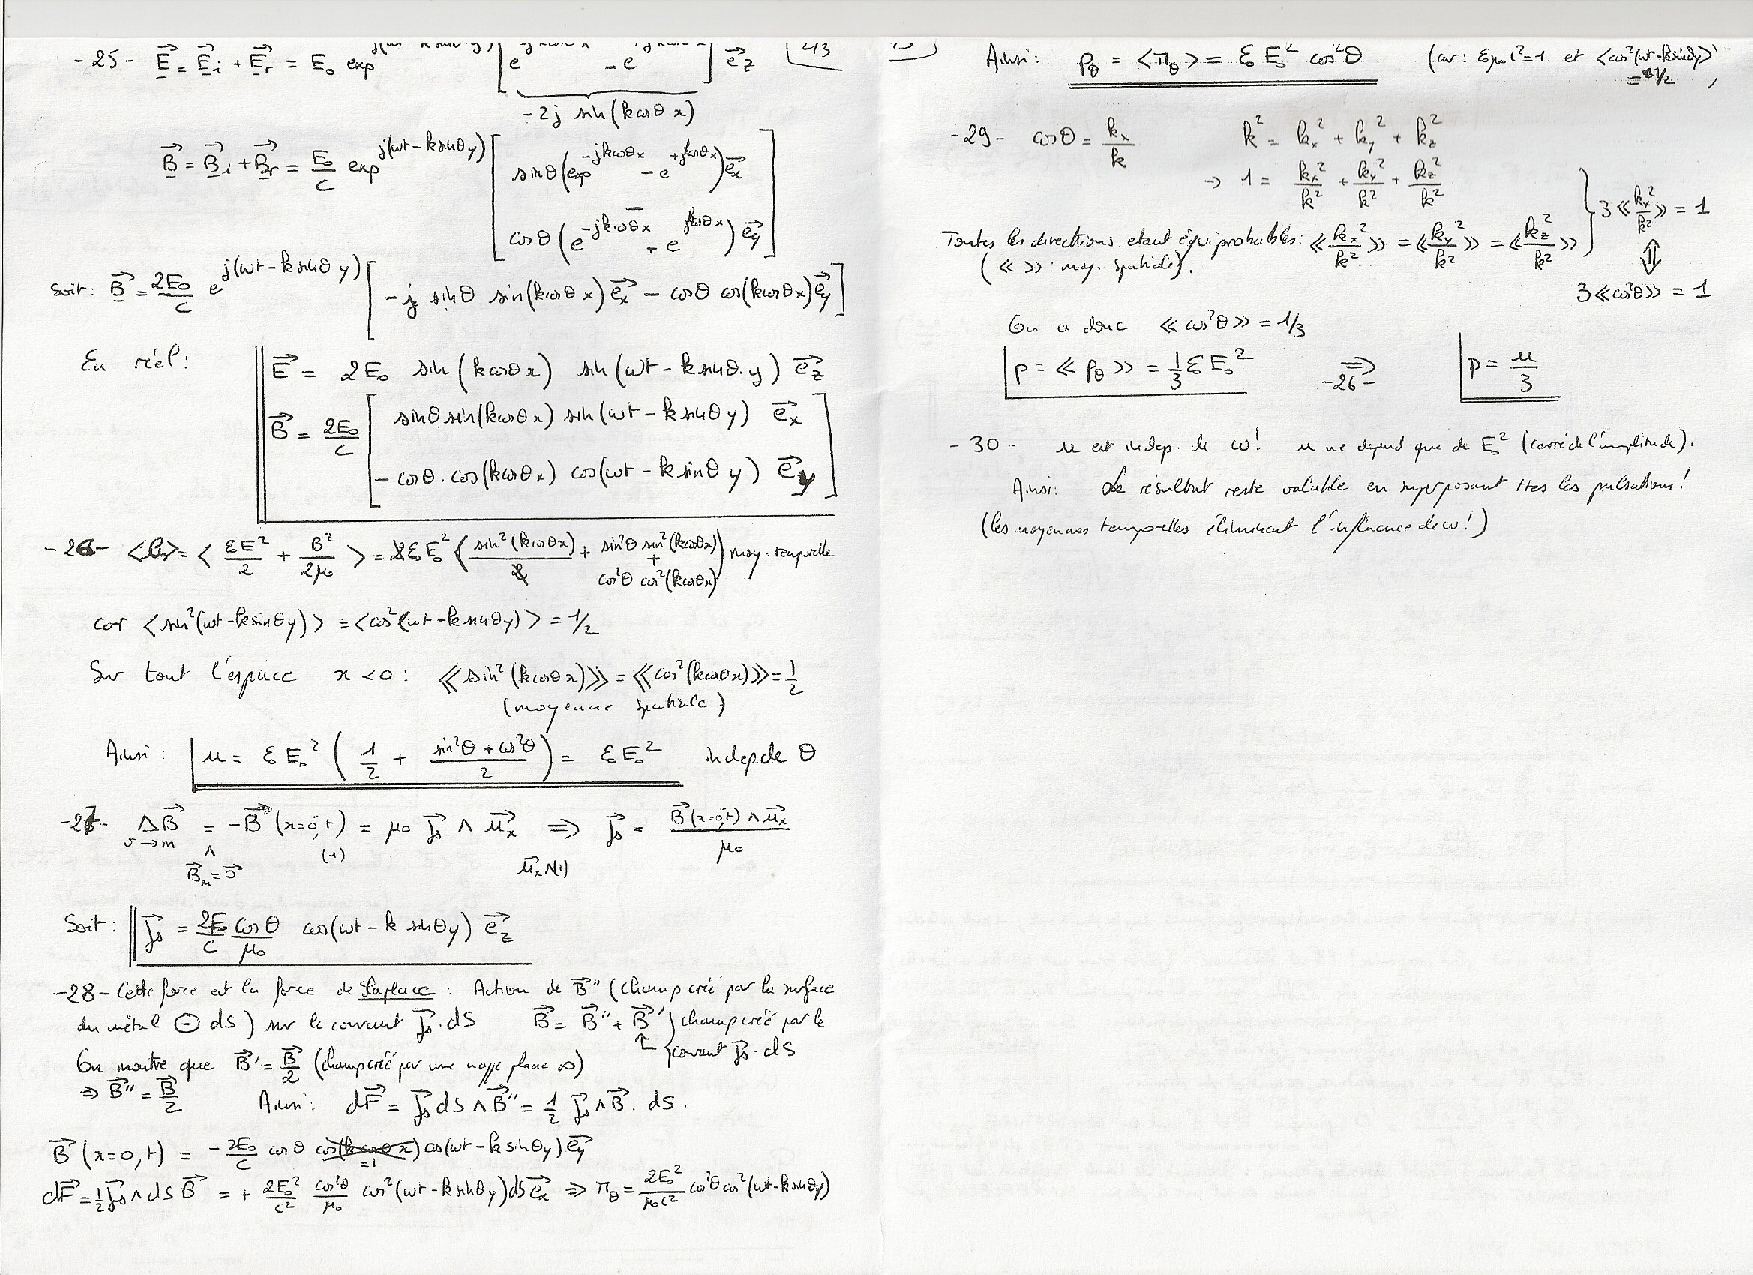 -25- E⃗ = E⃗i + E⃗r = E₀ exp [e - e] e⃗z
-2j sin(k cosθ x)
B⃗ = B⃗i + B⃗r = E₀/c exp^j(ωt - k sinθ y) [sinθ(exp^-jk cosθ x - e^+jk cosθ x) e⃗x
cosθ(e^-jk cosθ x - e^jk cosθ x) e⃗y]
Soit: B⃗ = 2E₀/c e^j(ωt - k sinθ y) [-j sinθ sin(k cosθ x) e⃗x - cosθ cos(k cosθ x) e⃗y]
En réel: E⃗ = 2E₀ sin(k cosθ x) sin(ωt - k sinθ.y) e⃗z
B⃗ = 2E₀/c [sinθ sin(k cosθ x) sin(ωt - k sinθ y) e⃗x
- cosθ.cos(k cosθ x) cos(ωt - k sinθ y) e⃗y]
-26- = < εE²/2 + B²/2μ₀ > = 2εE₀² (sin²(k cosθ x)/2 + sin²θ sin²(k cosθ x) + cos²θ cos²(k cosθ x)) moy. temporelle
car <sin²(ωt - k sinθ y)> = <cos²(ωt - k sinθ y)> = 1/2
Sur tout l'espace x<0: ≪sin²(k cosθ x)≫ = ≪cos²(k cosθ x)≫ = 1/2
(moyenne spatiale)
Ainsi: u = εE₀² (1/2 + (sin²θ + cos²θ)/2) = εE₀² indep de θ
-27- ΔB⃗ = -B⃗(x=0,t) = μ₀ j⃗s ∧ u⃗x ⇒ j⃗s = B⃗(x=0,t) ∧ u⃗x / μ₀
v→m (1) u⃗x ∧(1)
B⃗m = 0⃗
Soit: j⃗s = 2E₀/c cosθ/μ₀ cos(ωt - k sinθ y) e⃗z
-28- Cette force est la force de Laplace: Action de B⃗'' (champ créé par la surface
du métal ⊖ dS) sur le courant j⃗s.dS B⃗ = B⃗'' + B⃗' } champ créé par le
courant j⃗s.dS
On montre que B⃗' = B⃗/2 (champ créé par une nappe plane ∞)
⇒ B⃗'' = B⃗/2 Ainsi: dF⃗ = j⃗s dS ∧ B⃗'' = 1/2 j⃗s ∧ B⃗. dS.
B⃗(x=0,t) = -2E₀/c cosθ cos(k cosθ x) cos(ωt - k sinθ y) e⃗y
=1
dF⃗ = 1/2 j⃗s ∧ dS B⃗ = + 2E₀²/c² cos²θ/μ₀ cos²(ωt - k sinθ y) dS e⃗x ⇒ Πθ = 2E₀²/μ₀c² cos²θ cos²(ωt - k sinθ y)
Ainsi: pθ = <Πθ> = εE₀² cos²θ (car: ε₀μ₀c²=1 et <cos²(ωt - k sinθ y)>
= 1/2)
-29- cosθ = kx/k k² = kx² + ky² + kz²
→ 1 = kx²/k² + ky²/k² + kz²/k²
Toutes les directions étant équiprobables: ≪kx²/k²≫ = ≪ky²/k²≫ = ≪kz²/k²≫ } 3≪kx²/k²≫ = 1
(≪ ≫: moy. spatiale). ⇕
3≪cos²θ≫ = 1
On a donc ≪cos²θ≫ = 1/3
p = ≪pθ≫ = 1/3 εE₀² ⇒ p = u/3
-26-
-30- u est indep. de ω! u ne dépend que de E₀² (carré de l'amplitude).
Ainsi: Le résultat reste valable en superposant ttes les pulsations!
(les moyennes temporelles éliminent l'influence de ω!)